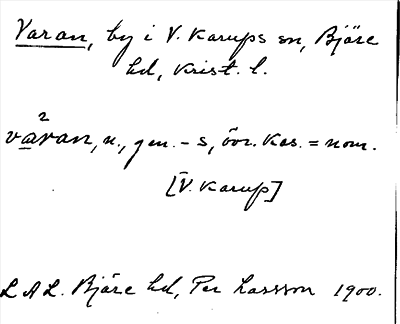 Varan, by i V. Karups sn, Bjäre
hd, Krist. l.
2
våran, n., gen. -s, övr. kas. = nom.
[V. Karup]
L A L. Bjäre hd, Per Larsson 1900.